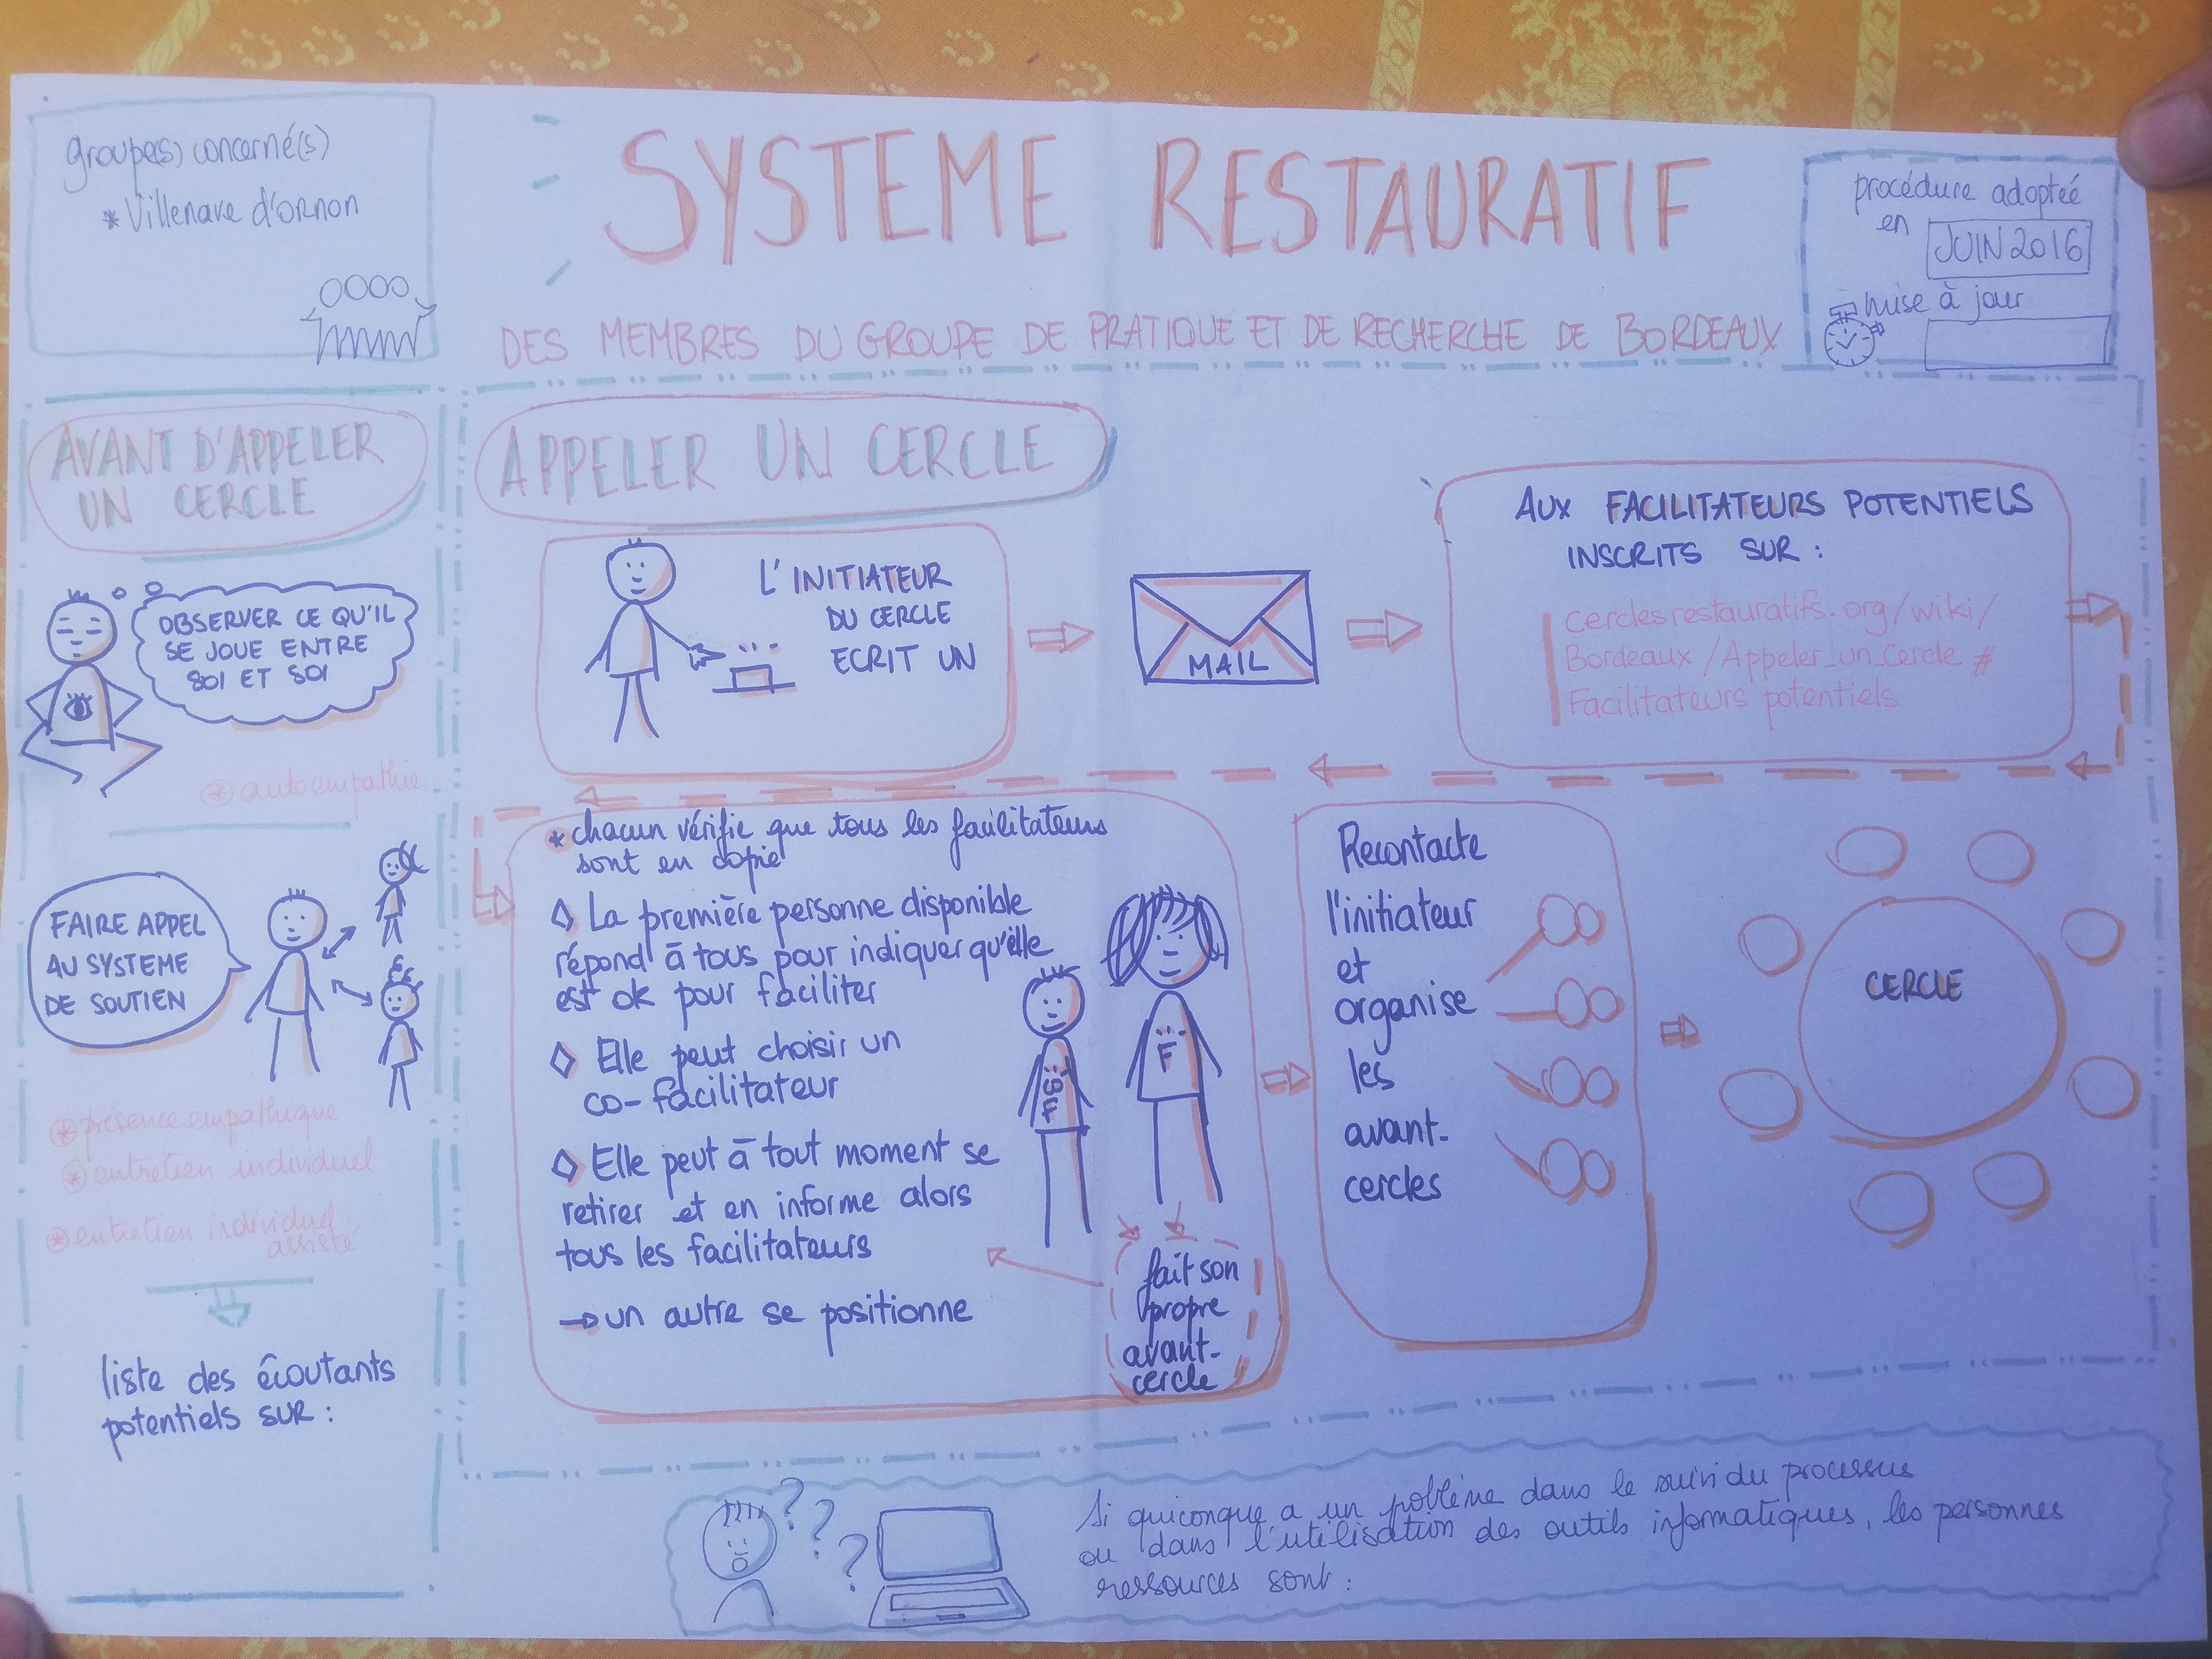 groupe(s) concerné(s)
* Villenave d'ornon
SYSTEME RESTAURATIF
DES MEMBRES DU GROUPE DE PRATIQUE ET DE RECHERCHE DE BORDEAUX
procédure adoptée
en JUIN 2016
mise à jour
AVANT D'APPELER
UN CERCLE
OBSERVER CE QU'IL
SE JOUE ENTRE
SOI ET SOI
* autoempathie
FAIRE APPEL
AU SYSTEME
DE SOUTIEN
* présence empathique
* entretien individuel
* entretien individuel
assisté
liste des écoutants
potentiels sur :
APPELER UN CERCLE
L'INITIATEUR
DU CERCLE
ECRIT UN
MAIL
AUX FACILITATEURS POTENTIELS
INSCRITS SUR :
cerclesrestauratifs.org/wiki/
Bordeaux/Appeler_un_Cercle #
Facilitateurs potentiels
* chacun vérifie que tous les facilitateurs
sont en copie
◊ La première personne disponible
répond à tous pour indiquer qu'elle
est ok pour faciliter
◊ Elle peut choisir un
co-facilitateur
◊ Elle peut à tout moment se
retirer et en informe alors
tous les facilitateurs
→ un autre se positionne
F
fait son
propre
avant-
cercle
Recontacte
l'initiateur
et
organise
les
avant-
cercles
CERCLE
? ? ?
Si quiconque a un problème dans le suivi du processus
ou dans l'utilisation des outils informatiques, les personnes
ressources sont :